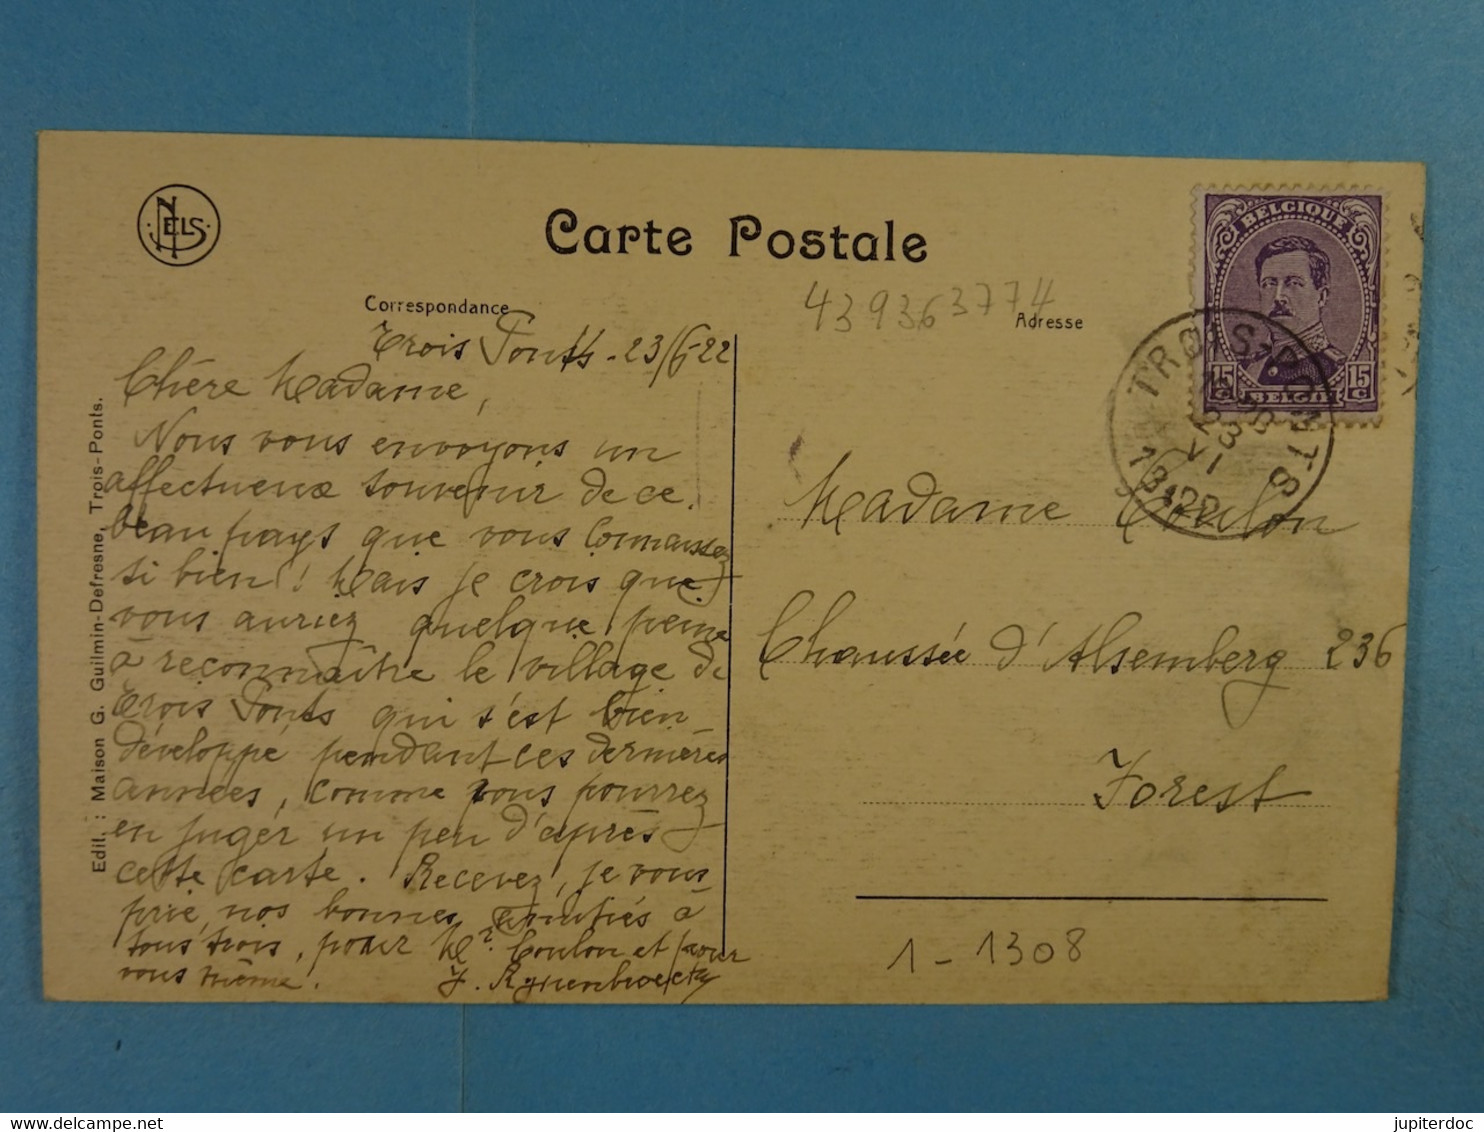 NELS
Carte Postale
BELGIQUE
15 c 15 c
BELGIË
TROIS-PONTS
13
23
VI
1922
439363774
Correspondance
Adresse
Trois Ponts - 23/6-22
Chère Madame,
Nous vous envoyons un
affectueux souvenir de ce
beau pays que vous connaissez
si bien! Mais je crois que
vous auriez quelque peine
à reconnaître le village de
Trois Ponts qui s'est bien
développé pendant ces dernières
années, comme vous pourrez
en juger un peu d'après
cette carte. Recevez, je vous
prie, nos bonnes amitiés à
tous trois, pour Mr Coulon et pour
vous même.
Madame Coulon
Chaussée d'Alsemberg 236
Forest
1 - 1308
Edit. : Maison G. Guilmin-Defresne, Trois-Ponts.
www.delcampe.net
jupiterdoc